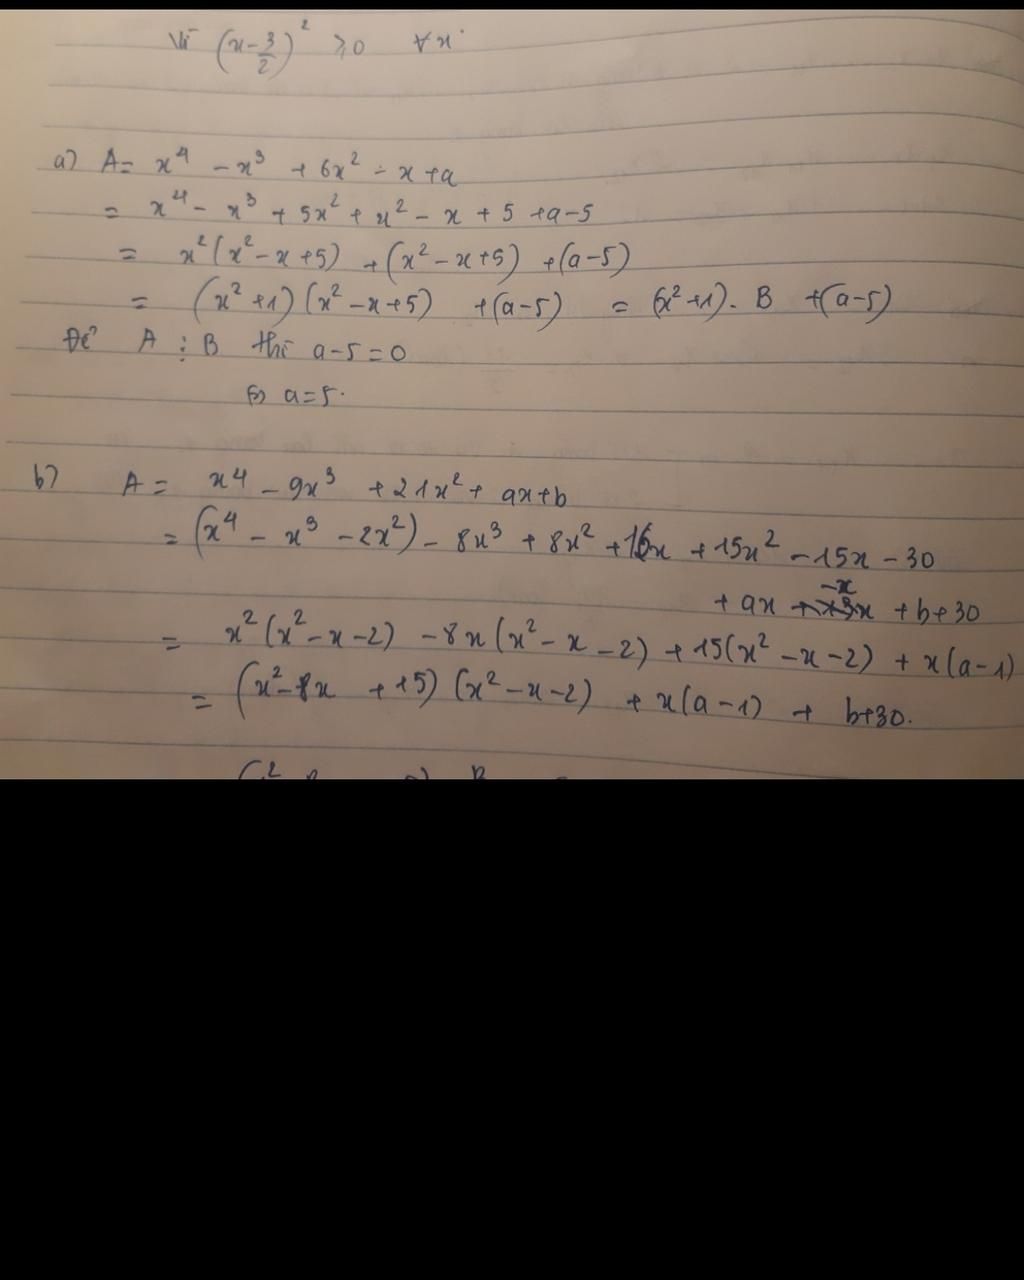 Vì (x-3/2)² ≥ 0 ∀x
a) A = x⁴ - x³ + 6x² - x + a
= x⁴ - x³ + 5x² + x² - x + 5 + a - 5
= x²(x² - x + 5) + (x² - x + 5) + (a - 5)
= (x² + 1)(x² - x + 5) + (a - 5) = (x² + 1). B + (a - 5)
Để A ⋮ B thì a - 5 = 0
⇔ a = 5.
b) A = x⁴ - 9x³ + 21x² + ax + b
= (x⁴ - x³ - 2x²) - 8x³ + 8x² + 16x + 15x² - 15x - 30
+ ax - x + b + 30
= x²(x² - x - 2) - 8x(x² - x - 2) + 15(x² - x - 2) + x(a - 1)
= (x² - 8x + 15)(x² - x - 2) + x(a - 1) + b + 30.